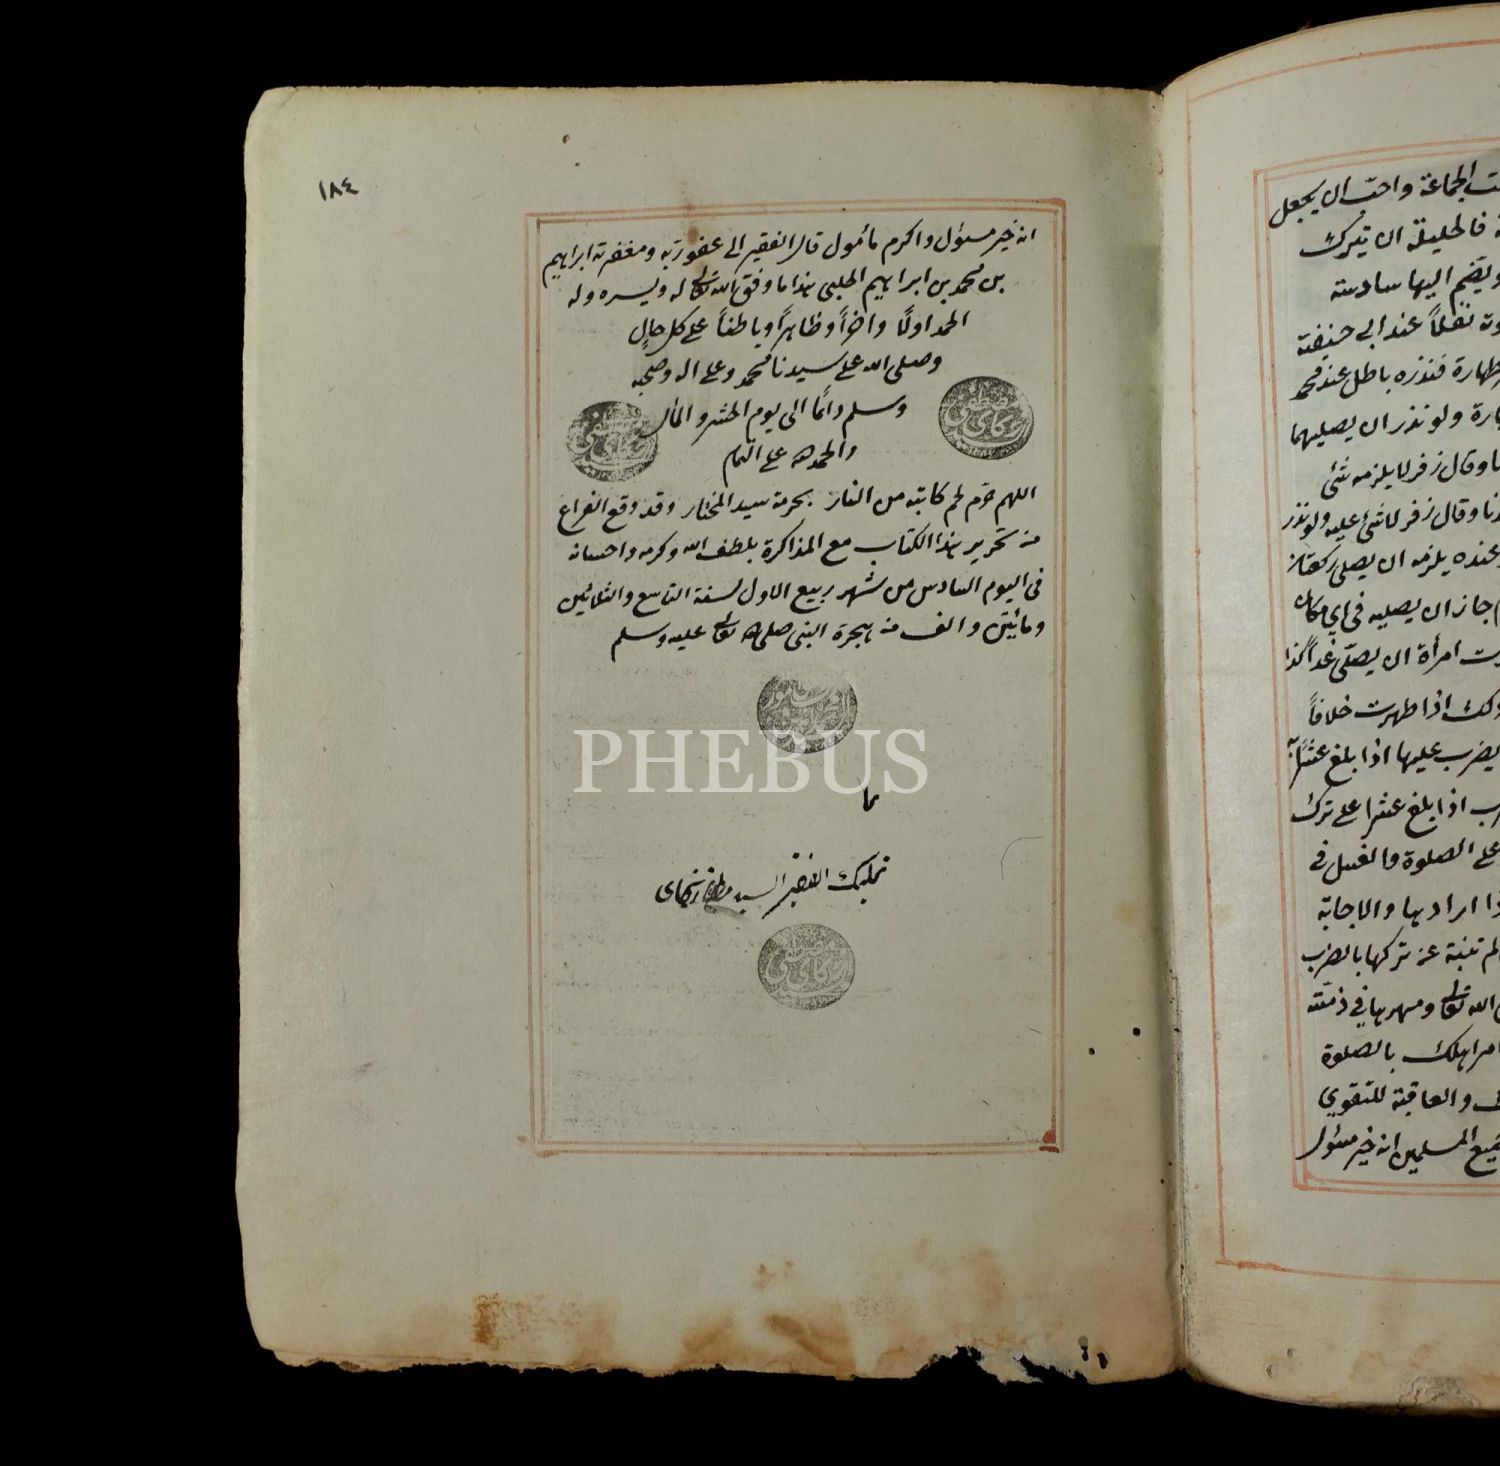 ١٨٤
انه خير مسئول واكرم مأمول قال الفقير الى عفو ربه ومغفرته ابراهيم
بن محمد بن ابراهيم الحلبى هذا ما وفق الله تعالى له ويسره وله
الحمد اولًا واخرًا وظاهرًا وباطنًا على كل حالٍ
وصلى الله على سيدنا محمد وعلى اله وصحبه
وسلم دائمًا الى يوم الحشر والمأل
والحمد لله على التمام
اللهم حرّم لحم كاتبه من النار بحرمة سيد المختار وقد وقع الفراغ
من تحرير هذا الكتاب مع المذاكرة بلطف الله وكرمه واحسانه
فى اليوم السادس من شهر ربيع الاول لسنة التاسع والثلاثين
ومائتين والف من هجرة النبى صلى الله تعالى عليه وسلم
PHEBUS
تملك الفقير السيد
ت الجماعة واحب ان يجعل
فالحيلة ان يترك
ويضم اليها سادسة
نفلًا عند ابى حنيفة
طهارة فنذره باطل عند محمد
ولو نذر ان يصليهما
وقال زفر لا يلزمه شئ
وقال زفر لا شئ عليه ولو نذر
عنده يلزمه ان يصلى ركعتان
جاز ان يصليه فى اي مكان
امرأة ان يصلى غدًا كذا
اذا طهرت خلافًا
يضرب عليها اذا بلغ عشرًا
اذا بلغ عشرا على ترك
على الصلوة والغسل فى
ارادها والاجابة
لم تنته عن تركها بالضرب
الله تعالى ومهرها فى ذمته
بالصلوة
والعاقبة للتقوي
جميع المسلمين انه خير مسئول